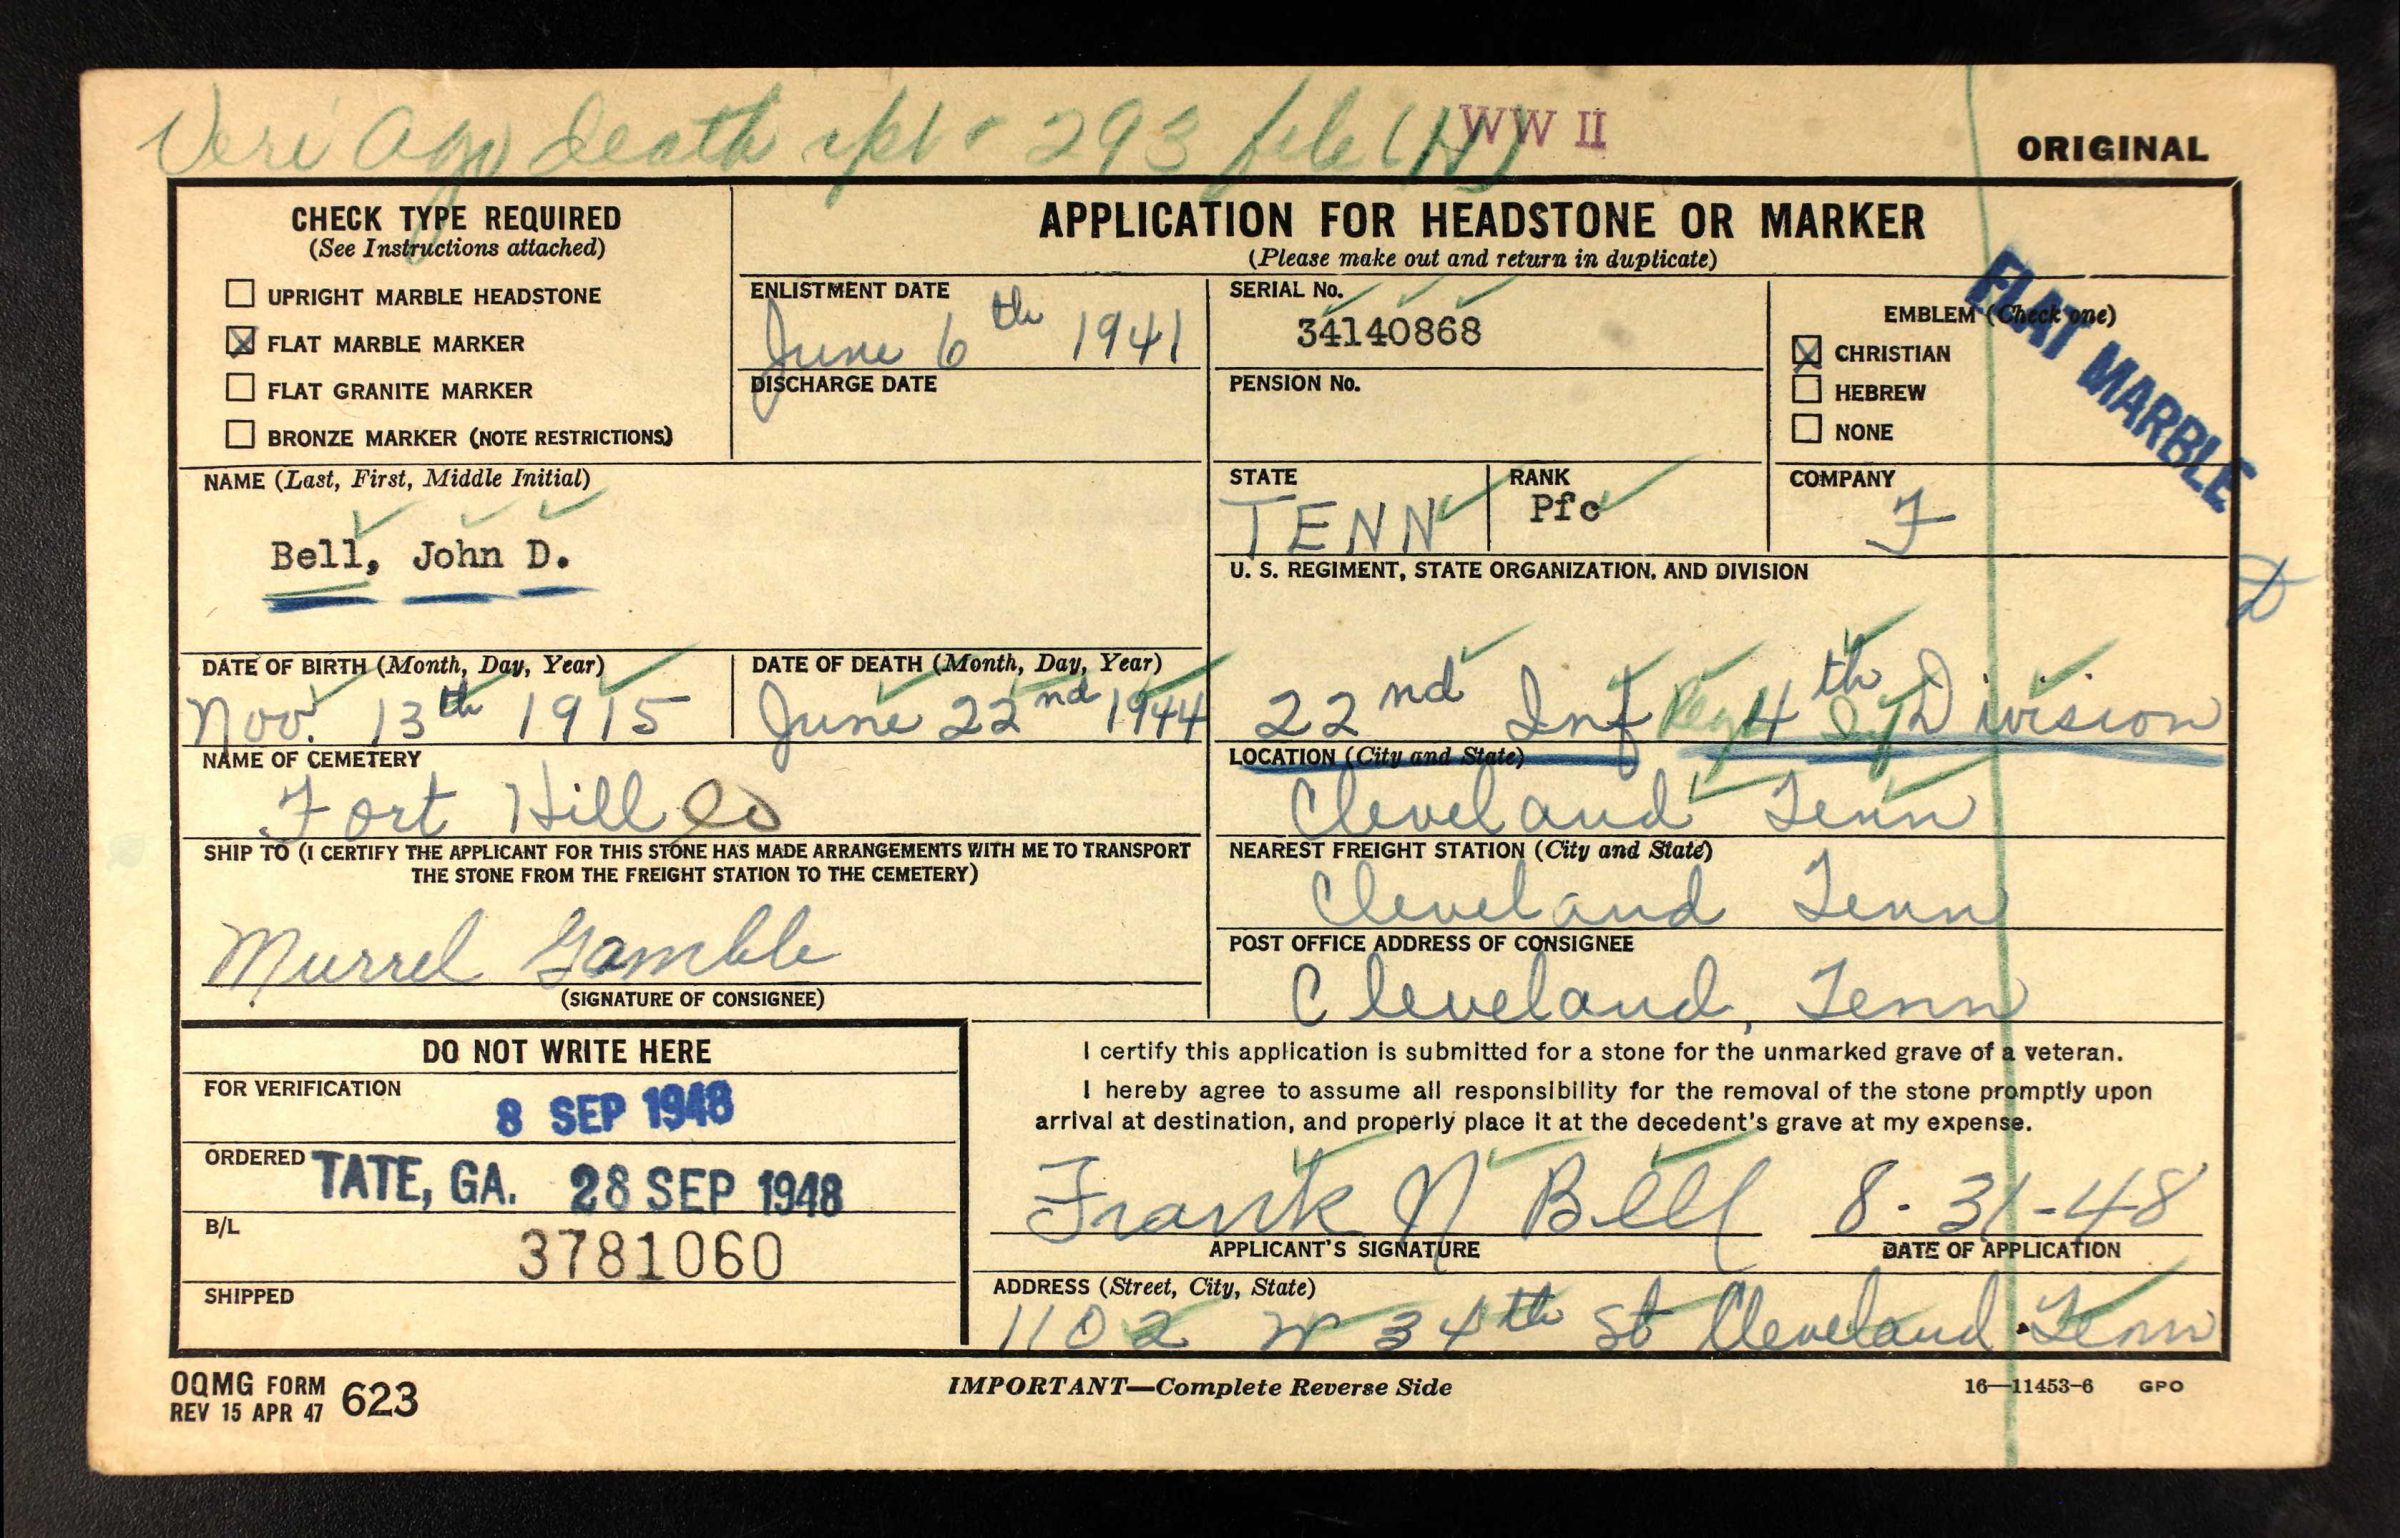 Veri Ago death rpt + 293 file (H)
WW II
ORIGINAL
CHECK TYPE REQUIRED
(See Instructions attached)
☐ UPRIGHT MARBLE HEADSTONE
☒ FLAT MARBLE MARKER
☐ FLAT GRANITE MARKER
☐ BRONZE MARKER (NOTE RESTRICTIONS)
APPLICATION FOR HEADSTONE OR MARKER
(Please make out and return in duplicate)
ENLISTMENT DATE
June 6th 1941
DISCHARGE DATE
SERIAL No.
34140868
PENSION No.
EMBLEM (Check one)
☒ CHRISTIAN
☐ HEBREW
☐ NONE
FLAT MARBLE
NAME (Last, First, Middle Initial)
Bell, John D.
STATE
TENN
RANK
Pfc
COMPANY
F
U. S. REGIMENT, STATE ORGANIZATION, AND DIVISION
22nd Inf Reg 4th Inf Division
DATE OF BIRTH (Month, Day, Year)
Nov. 13th 1915
DATE OF DEATH (Month, Day, Year)
June 22nd 1944
NAME OF CEMETERY
Fort Hill
LOCATION (City and State)
Cleveland Tenn
SHIP TO (I CERTIFY THE APPLICANT FOR THIS STONE HAS MADE ARRANGEMENTS WITH ME TO TRANSPORT
THE STONE FROM THE FREIGHT STATION TO THE CEMETERY)
Murrel Gamble
(SIGNATURE OF CONSIGNEE)
NEAREST FREIGHT STATION (City and State)
Cleveland Tenn
POST OFFICE ADDRESS OF CONSIGNEE
Cleveland, Tenn
DO NOT WRITE HERE
FOR VERIFICATION
8 SEP 1948
ORDERED
TATE, GA. 28 SEP 1948
B/L
3781060
SHIPPED
I certify this application is submitted for a stone for the unmarked grave of a veteran.
I hereby agree to assume all responsibility for the removal of the stone promptly upon
arrival at destination, and properly place it at the decedent's grave at my expense.
Frank N Bell 8-31-48
APPLICANT'S SIGNATURE DATE OF APPLICATION
ADDRESS (Street, City, State)
1102 W 34th St Cleveland Tenn
OQMG FORM 623
REV 15 APR 47
IMPORTANT—Complete Reverse Side
16—11453-6 GPO